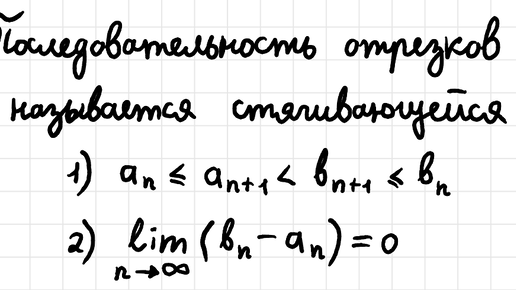 Последовательность отрезков
называется стягивающейся
1) aₙ ≤ aₙ₊₁ < bₙ₊₁ ≤ bₙ
2) lim (bₙ - aₙ) = 0
n→∞